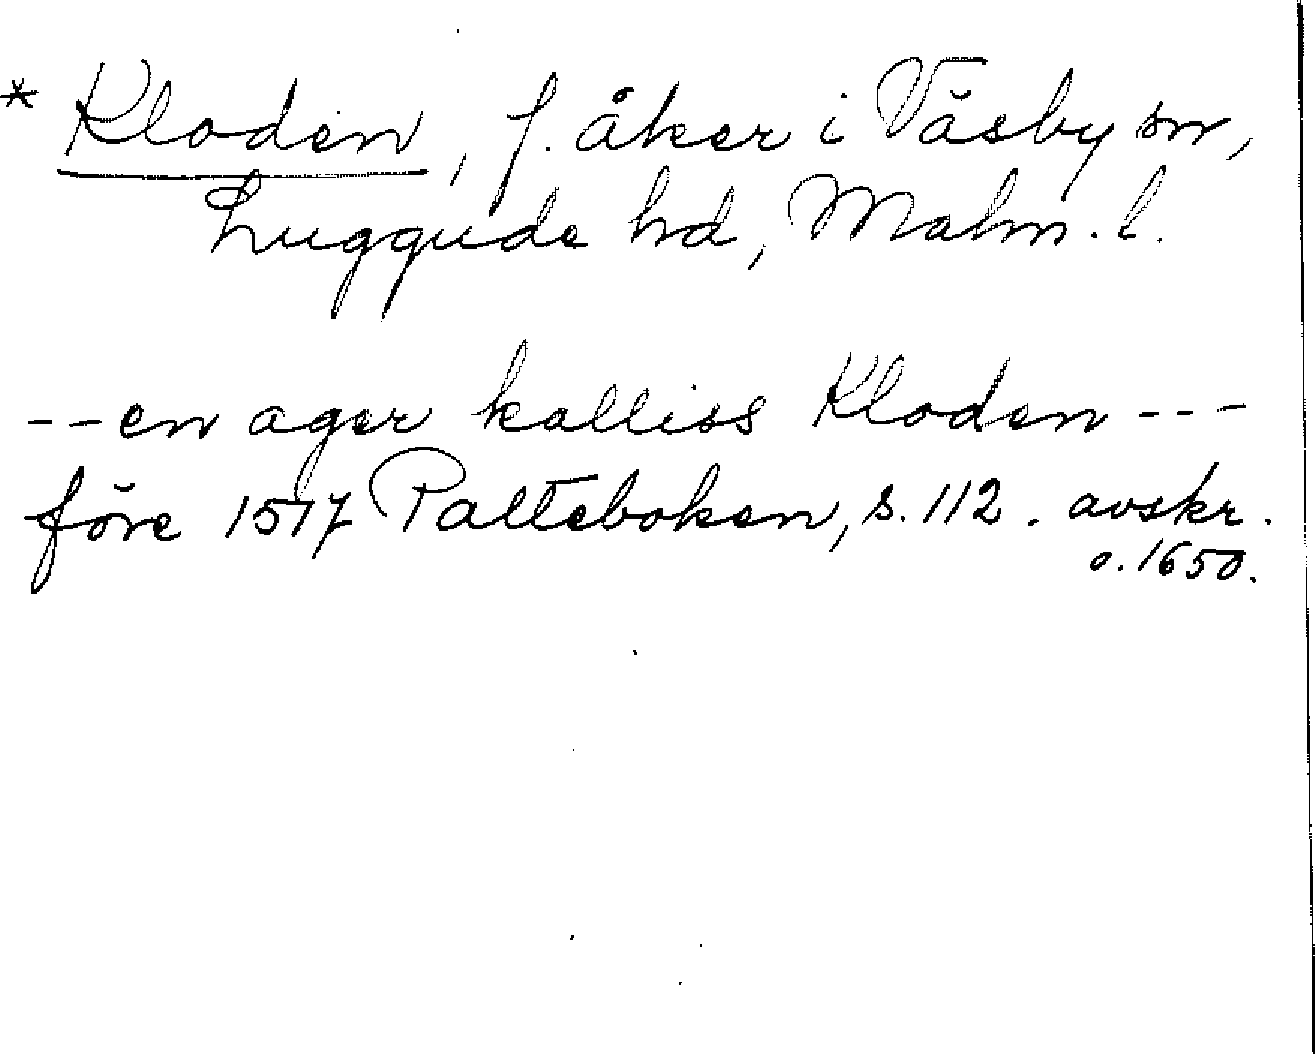 * Kloden, f. åker i Väsby sn,
Luggude hd, Malm. l.
-- en ager kalliss Kloden ---
före 1517 Palteboken, s. 112. avskr.
o. 1650.